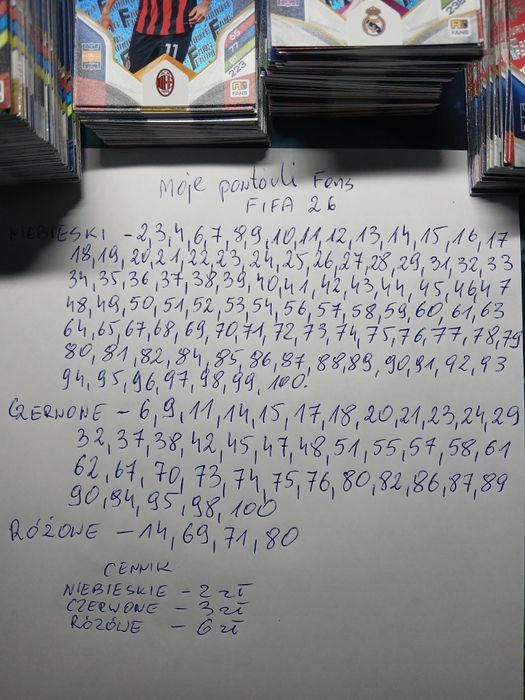 11
65
77
223
FANS
FANS
Moje pontouli Fans
FIFA 26
NIEBIESKI - 2,3,4,6,7,8,9,10,11,12,13,14,15,16,17
18,19,20,21,22,23,24,25,26,27,28,29,31,32,33
34,35,36,37,38,39,40,41,42,43,44,45,46,47
48,49,50,51,52,53,54,56,57,58,59,60,61,63
64,65,67,68,69,70,71,72,73,74,75,76,77,78,79
80,81,82,84,85,86,87,88,89,90,91,92,93
94,95,96,97,98,99,100.
CZERWONE - 6,9,11,14,15,17,18,20,21,23,24,29
32,37,38,42,45,47,48,51,55,57,58,61
62,67,70,73,74,75,76,80,82,86,87,89
90,94,95,98,100
RÓŻOWE - 14,69,71,80
CENNIK
NIEBIESKIE - 2 zł
CZERWONE - 3 zł
RÓŻOWE - 6 zł